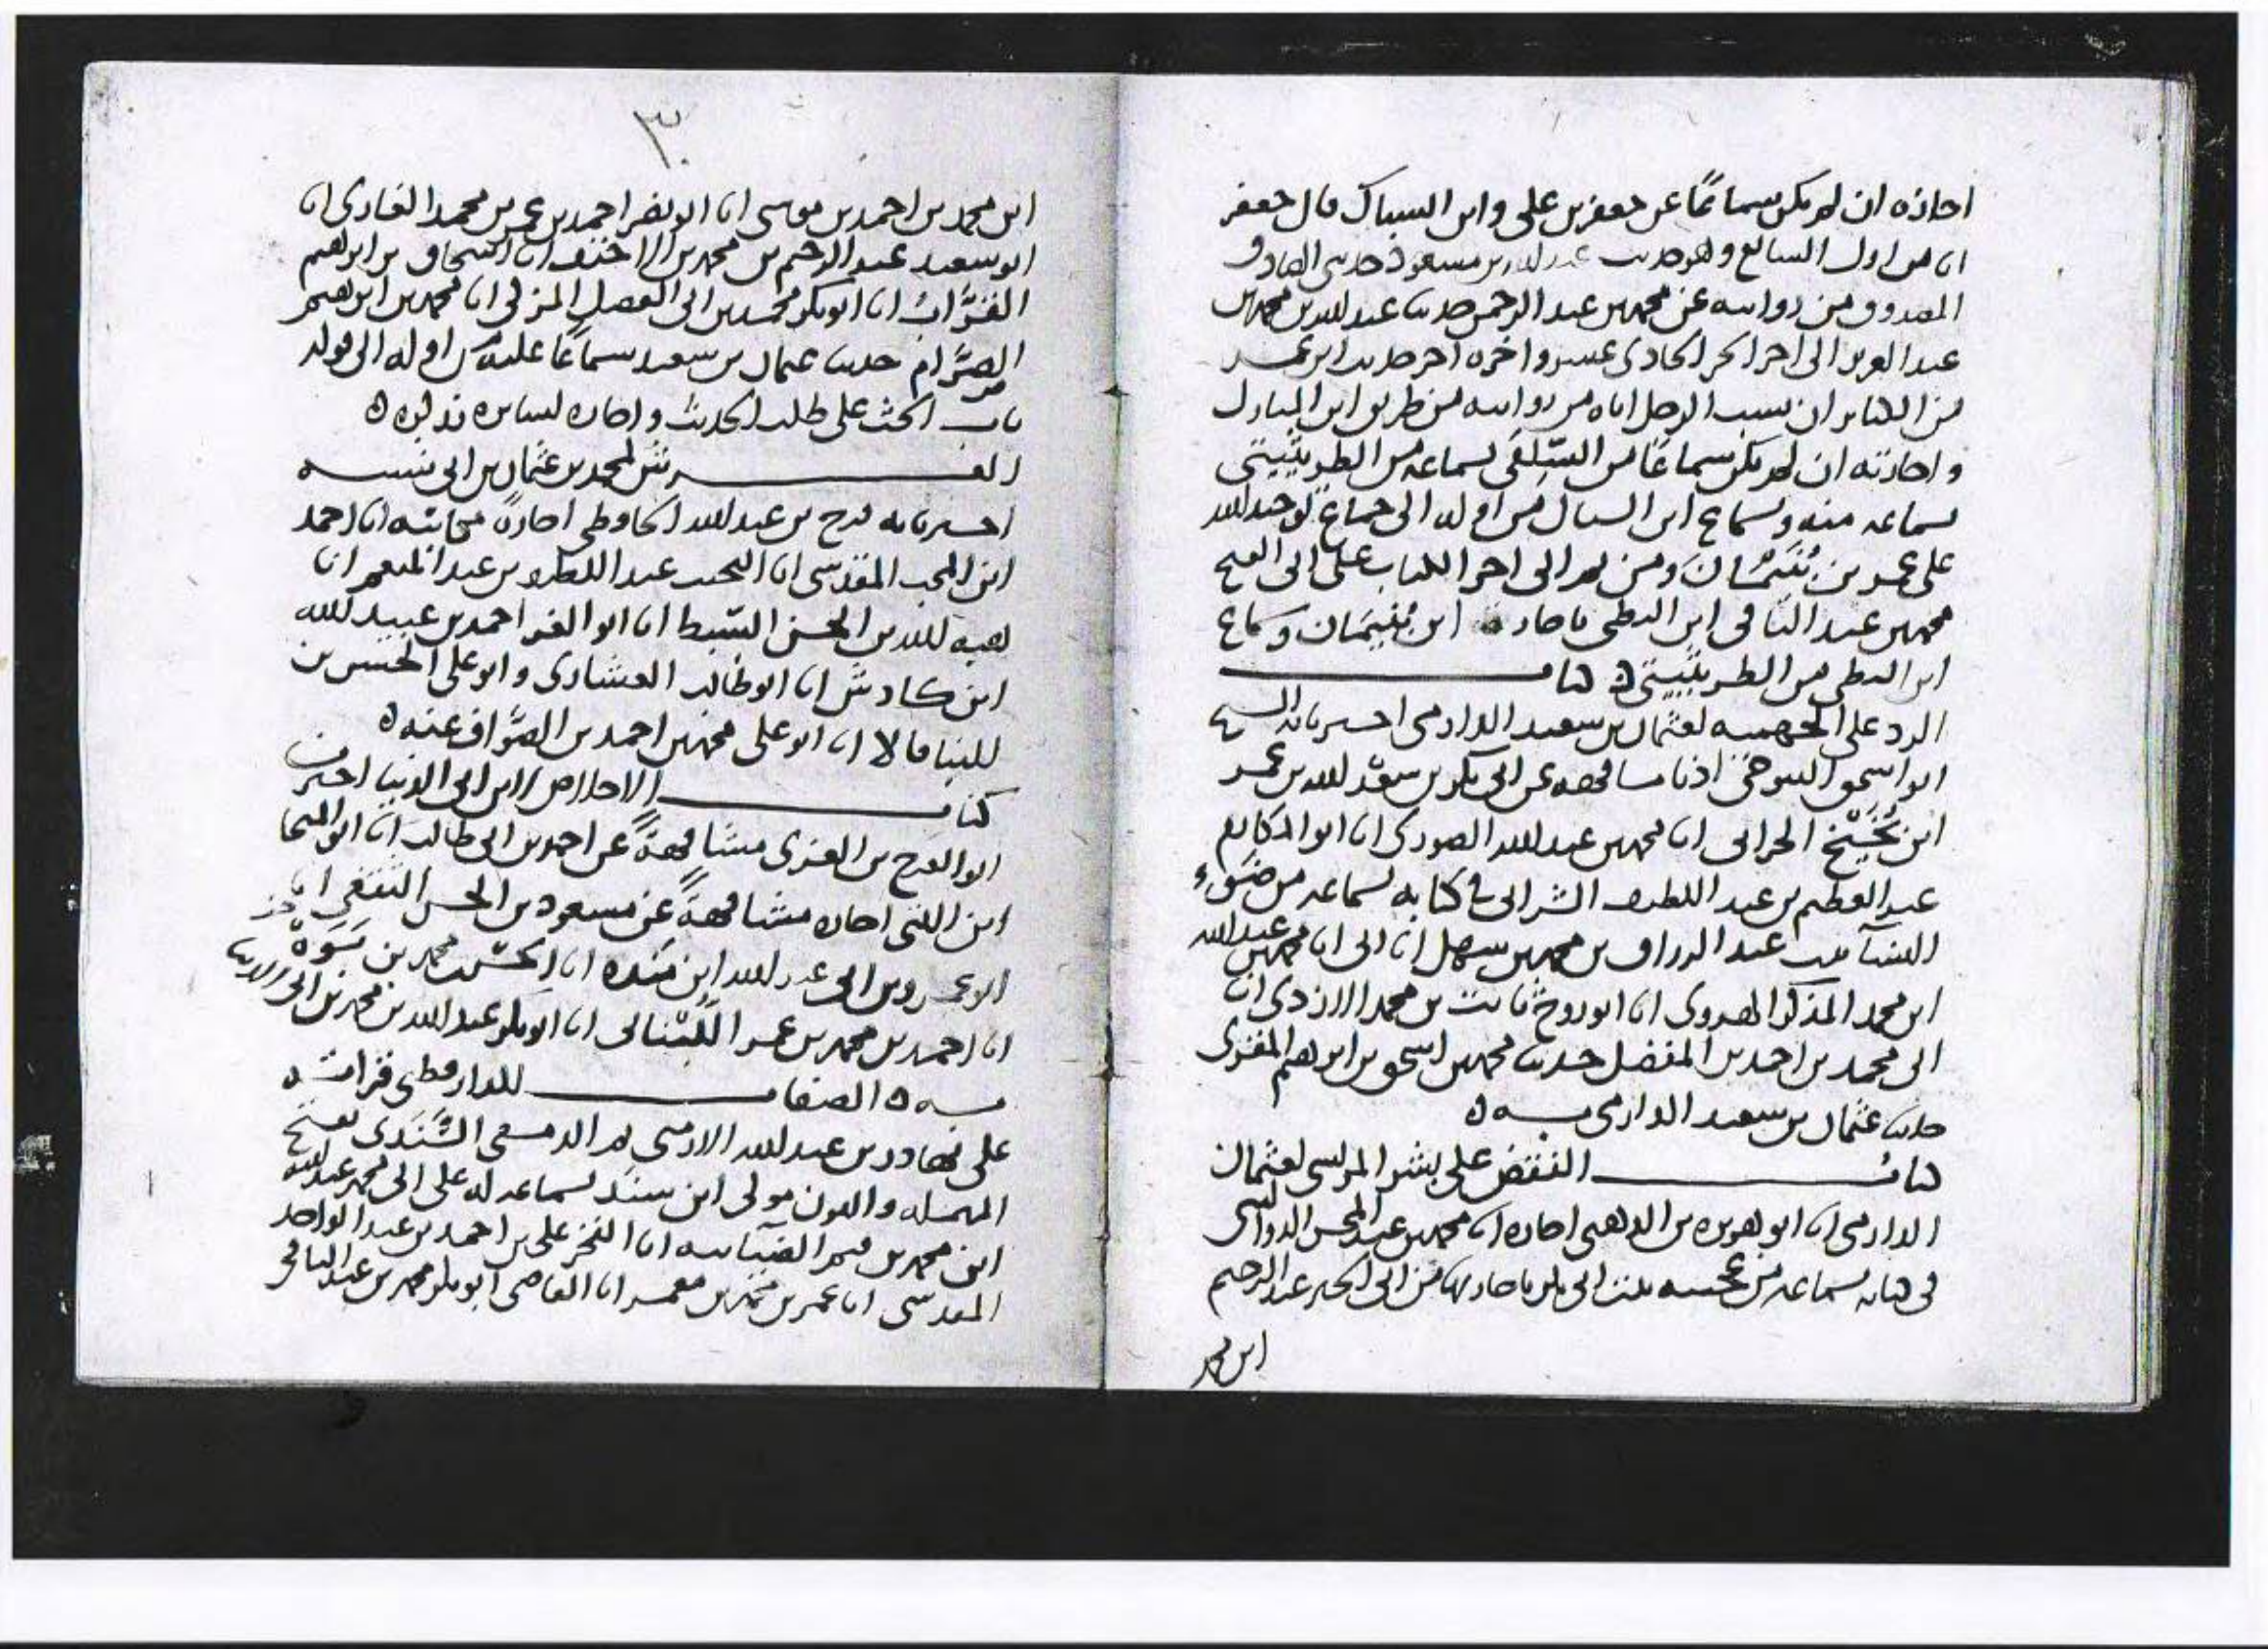 اجازه ان لم يكن سماعًا عن جعفر بن علي وابن السباك قال جعفر
انا من اول السابع وهو حديث عبد الله بن مسعود حدثني الصادق
المصدوق من روايته عن محمد بن عبد الرحمن حدثنا عبد الله بن محمد بن
عبد العزيز الى اخر الجز الحادي عشر واخره اخر حديث ابن عمر
من الكبائر ان يسب الرجل اباه من روايته من طريق ابن المبارك
واجازته ان لم يكن سماعًا من السِّلَفي بسماعه من الطريثيثي
بسماعه منه وبسماع ابن السباك من اوله الى جماع توحيد الله
على عمر بن بُنَيْمَان ومن ثم الى اخر الكتاب على ابي الفتح
محمد بن عبد الباقي ابن البطي باجازة ابن بُنَيمَان وسماع
ابن البطي من الطريثيثي ه كتاب
الرد على الجهميه لعثمان بن سعيد الدارمي اخبرنا به الشيخ
ابو اسحق التنوخي اذنا مشافهه عن ابي بكر بن سعد الله بن عمر
ابن نُجَيْخ الحراني انا محمد بن عبد الله الصوري انا ابو المكارم
عبد العظيم بن عبد اللطيف الشرابي في كتابه بسماعه من ضَوْء
النسا بنت عبد الرزاق بن محمد بن سهل انا ابي انا محمد بن عبد الله
ابن محمد المذكر الهروي انا ابو روح ثابت بن محمد الازدي انا
ابي محمد بن احمد بن الفضل حدثنا محمد بن اسحق بن ابراهيم المقري
حدثنا عثمان بن سعيد الدارمي به ه
كتاب النقض على بشر المريسي لعثمان
الدارمي انا ابو هريره بن الذهبي اجازه انا محمد بن عبد المحسن الدواليبي
في كتابه بسماعه من عجيبه بنت ابي بكر باجازتها من ابي الخير عبد الرحيم
ابن محمد
٣٠
ابن محمد بن احمد بن موسى انا ابو نصر احمد بن عمر بن محمد الغازي انا
ابو سعيد عبد الرحيم بن محمد بن الاخنف انا اسحاق بن ابراهيم
القرَّاب انا ابو بكر محمد بن ابي الفضل المزكي انا محمد بن ابراهيم
الصرَّام حدثنا عثمان بن سعيد سماعًا عليه من اوله الى قوله
باب الحث على طلب الحديث واجازه لسايره فذكره ه
العرش لمحمد بن عثمان بن ابي شيبه
اخبرنا به فرج بن عبد الله الحافظي اجازة مكاتبه انا احمد
ابن المحب المقدسي انا النجيب عبد اللطيف بن عبد المنعم انا
هبة الله بن الحسن السِّبط انا ابو العز احمد بن عبيد الله
ابن كادش انا ابو طالب العشاري وابو علي الحسن بن
البنا قالا انا ابو علي محمد بن احمد بن الصوَّاف عنه ه
كتاب الاخلاص لابن ابي الدنيا اخبرنا
ابو الفرج بن الغزي مشافهةً عن احمد بن ابي طالب انا ابو المنجا
ابن اللتي اجازه مشافهةً عن مسعود بن الحسن الثقفي انا
ابو عمرو بن ابي عبد الله ابن مَنده انا الحسن بن محمد بن يَوَهْ
انا احمد بن محمد بن عمر اللُّبْناني انا ابو بكر عبد الله بن محمد بن ابي الدنيا
به ه الصفات للدارقطني قراته
على بهادر بن عبد الله الارمني ثم الدمشقي السَّنَدي بفتح
المهمله والنون مولى ابن سنَد بسماعه له على ابي محمد عبد الله
ابن محمد بن قيم الضيائيه انا الفخر علي بن احمد بن عبد الواحد
المقدسي انا عمر بن محمد بن معمر انا القاضي ابو بكر محمد بن عبد الباقي